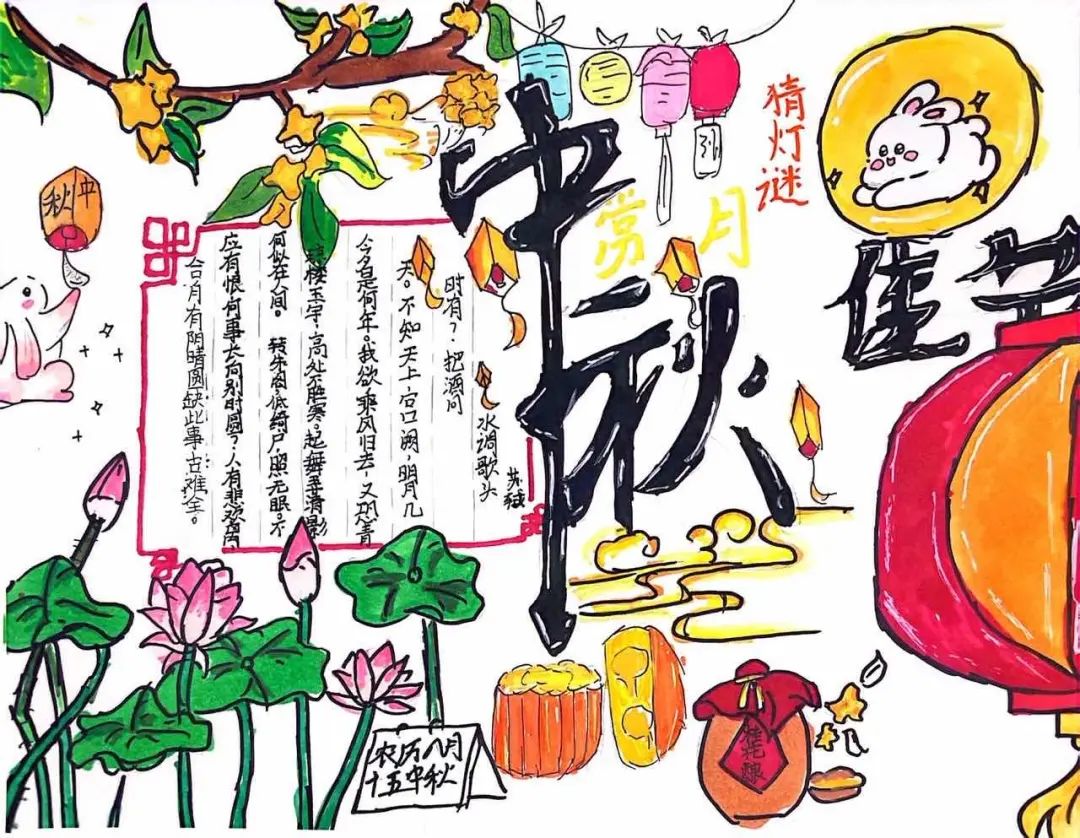 中秋
佳节
赏月
猜灯谜
中秋
水调歌头
苏轼
时有？把酒问
天。不知天上宫阙，明月几
今名是何年。我欲乘风归去，又恐青
楼玉宇，高处不胜寒。起舞弄清影
何似在人间。 转朱阁低绮户，照无眠。不
应有恨，何事长向别时圆？人有悲欢离
合月有阴晴圆缺此事古难全。
农历八月
十五中秋
桂花酿